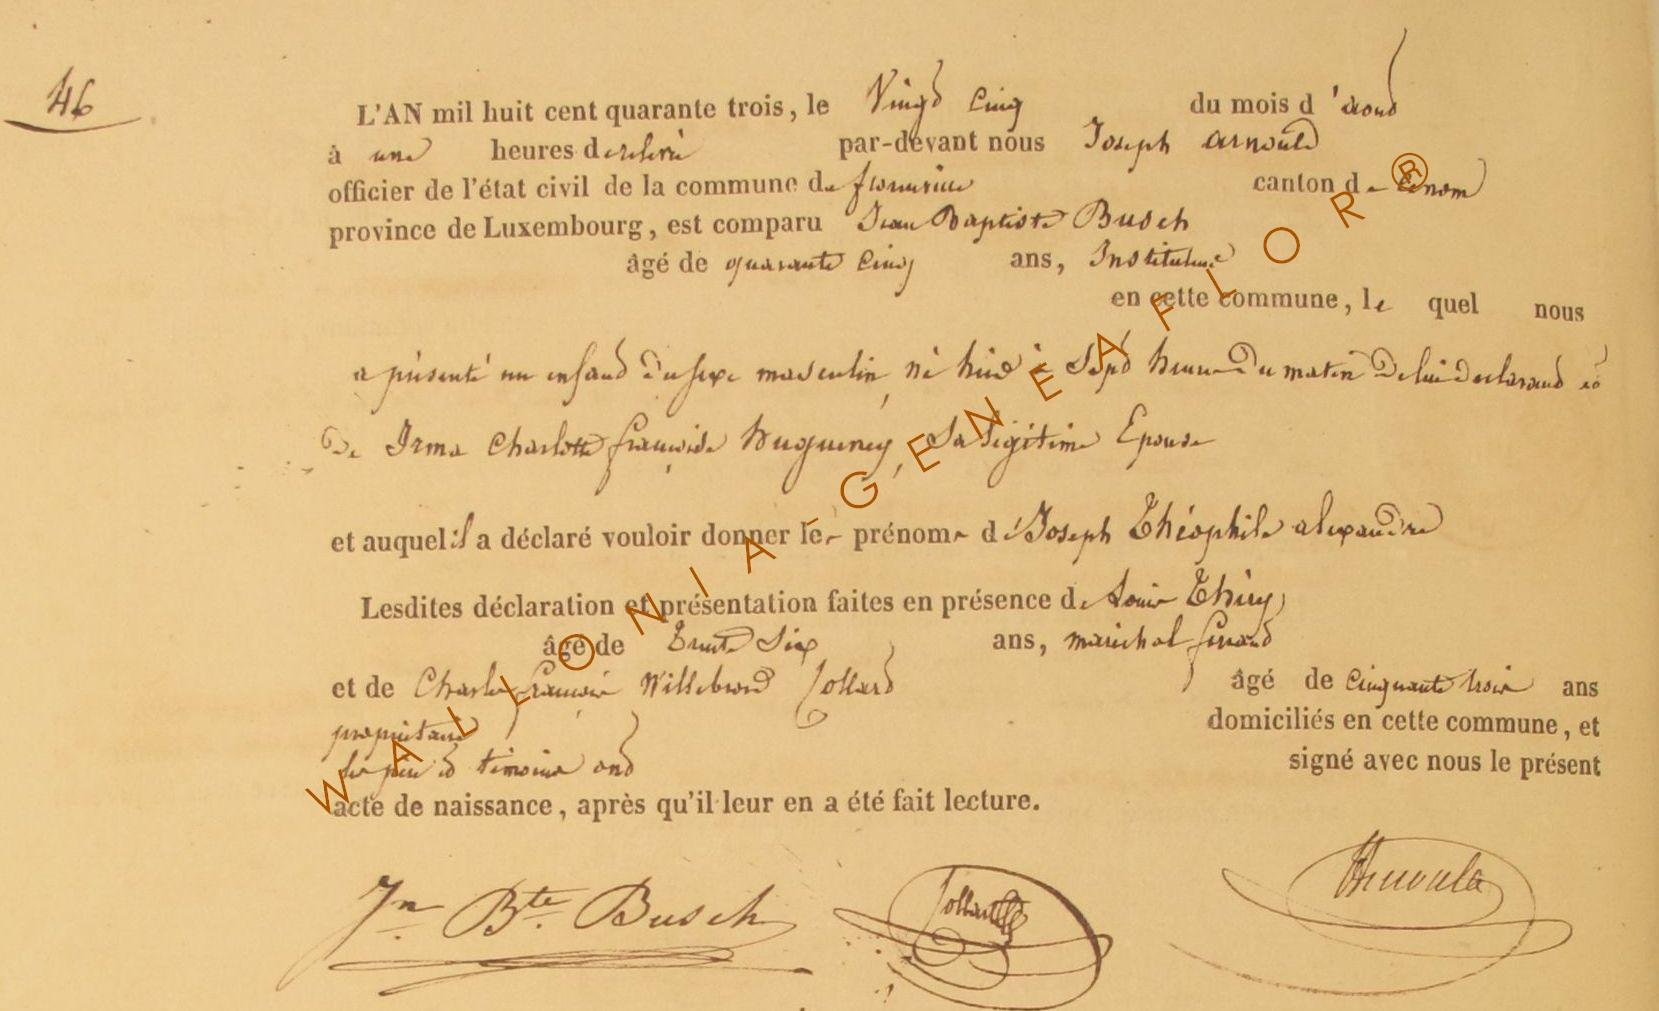 46
L'AN mil huit cent quarante trois, le Vingt Cinq du mois d'aout
à une heures de relevé par-devant nous Joseph Arnould
officier de l'état civil de la commune de canton de
province de Luxembourg, est comparu Jean Baptiste Busch
âgé de quarante Cinq ans, Instituteur
en cette commune, le quel nous
a présenté un enfant du sexe masculin, né hier à Sept heures du matin de lui déclarant et
de Irma Charlotte françoise huguency, Sa légitime Epouse
et auquel il a déclaré vouloir donner les prénoms de Joseph Théophile alexandre
Lesdites déclaration et présentation faites en présence de Louis Thiry
âgé de Trente Six ans, maréchal ferrand
et de Charles françois Willebrord Jollard âgé de Cinquante trois ans
propriétaire domiciliés en cette commune, et
les père et témoins ont signé avec nous le présent
acte de naissance, après qu'il leur en a été fait lecture.
Jn Bte Busch
WALLONIA-GENEAFLOR®